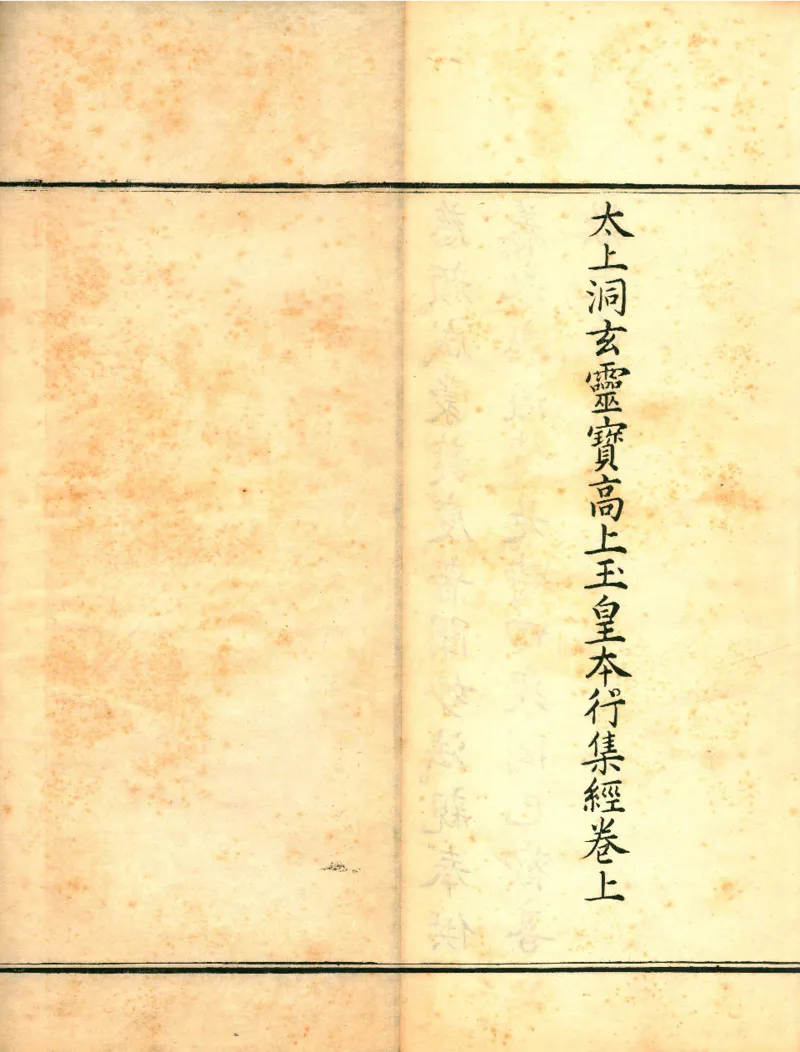 太上洞玄靈寶高上玉皇本行集經卷上